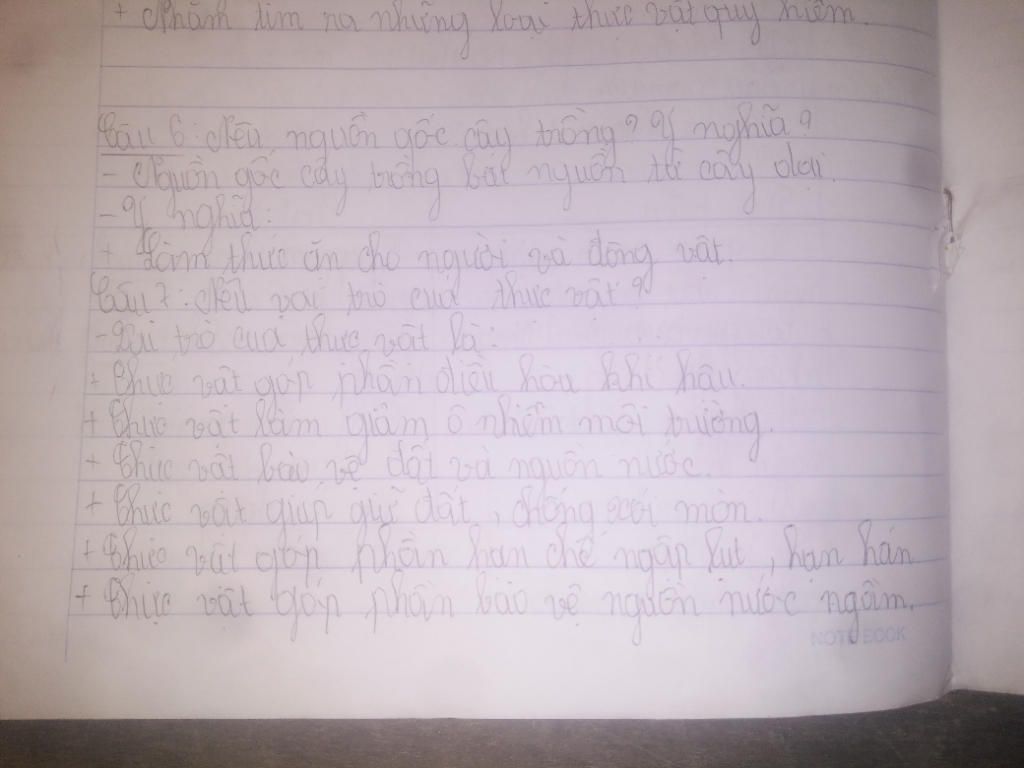 + Nhằm tìm ra những loại thực vật quý hiếm.
Câu 6: Nêu nguồn gốc cây trồng? Ý nghĩa?
- Nguồn gốc cây trồng bắt nguồn từ cây dại.
- Ý nghĩa:
+ Làm thức ăn cho người và động vật.
Câu 7: Nêu vai trò của thực vật?
- Vai trò của thực vật là:
+ Thực vật góp phần điều hòa khí hậu.
+ Thực vật làm giảm ô nhiễm môi trường.
+ Thực vật bảo vệ đất và nguồn nước.
+ Thực vật giúp giữ đất, chống xói mòn.
+ Thực vật góp phần hạn chế ngập lụt, hạn hán
+ Thực vật góp phần bảo vệ nguồn nước ngầm.
NOTEBOOK